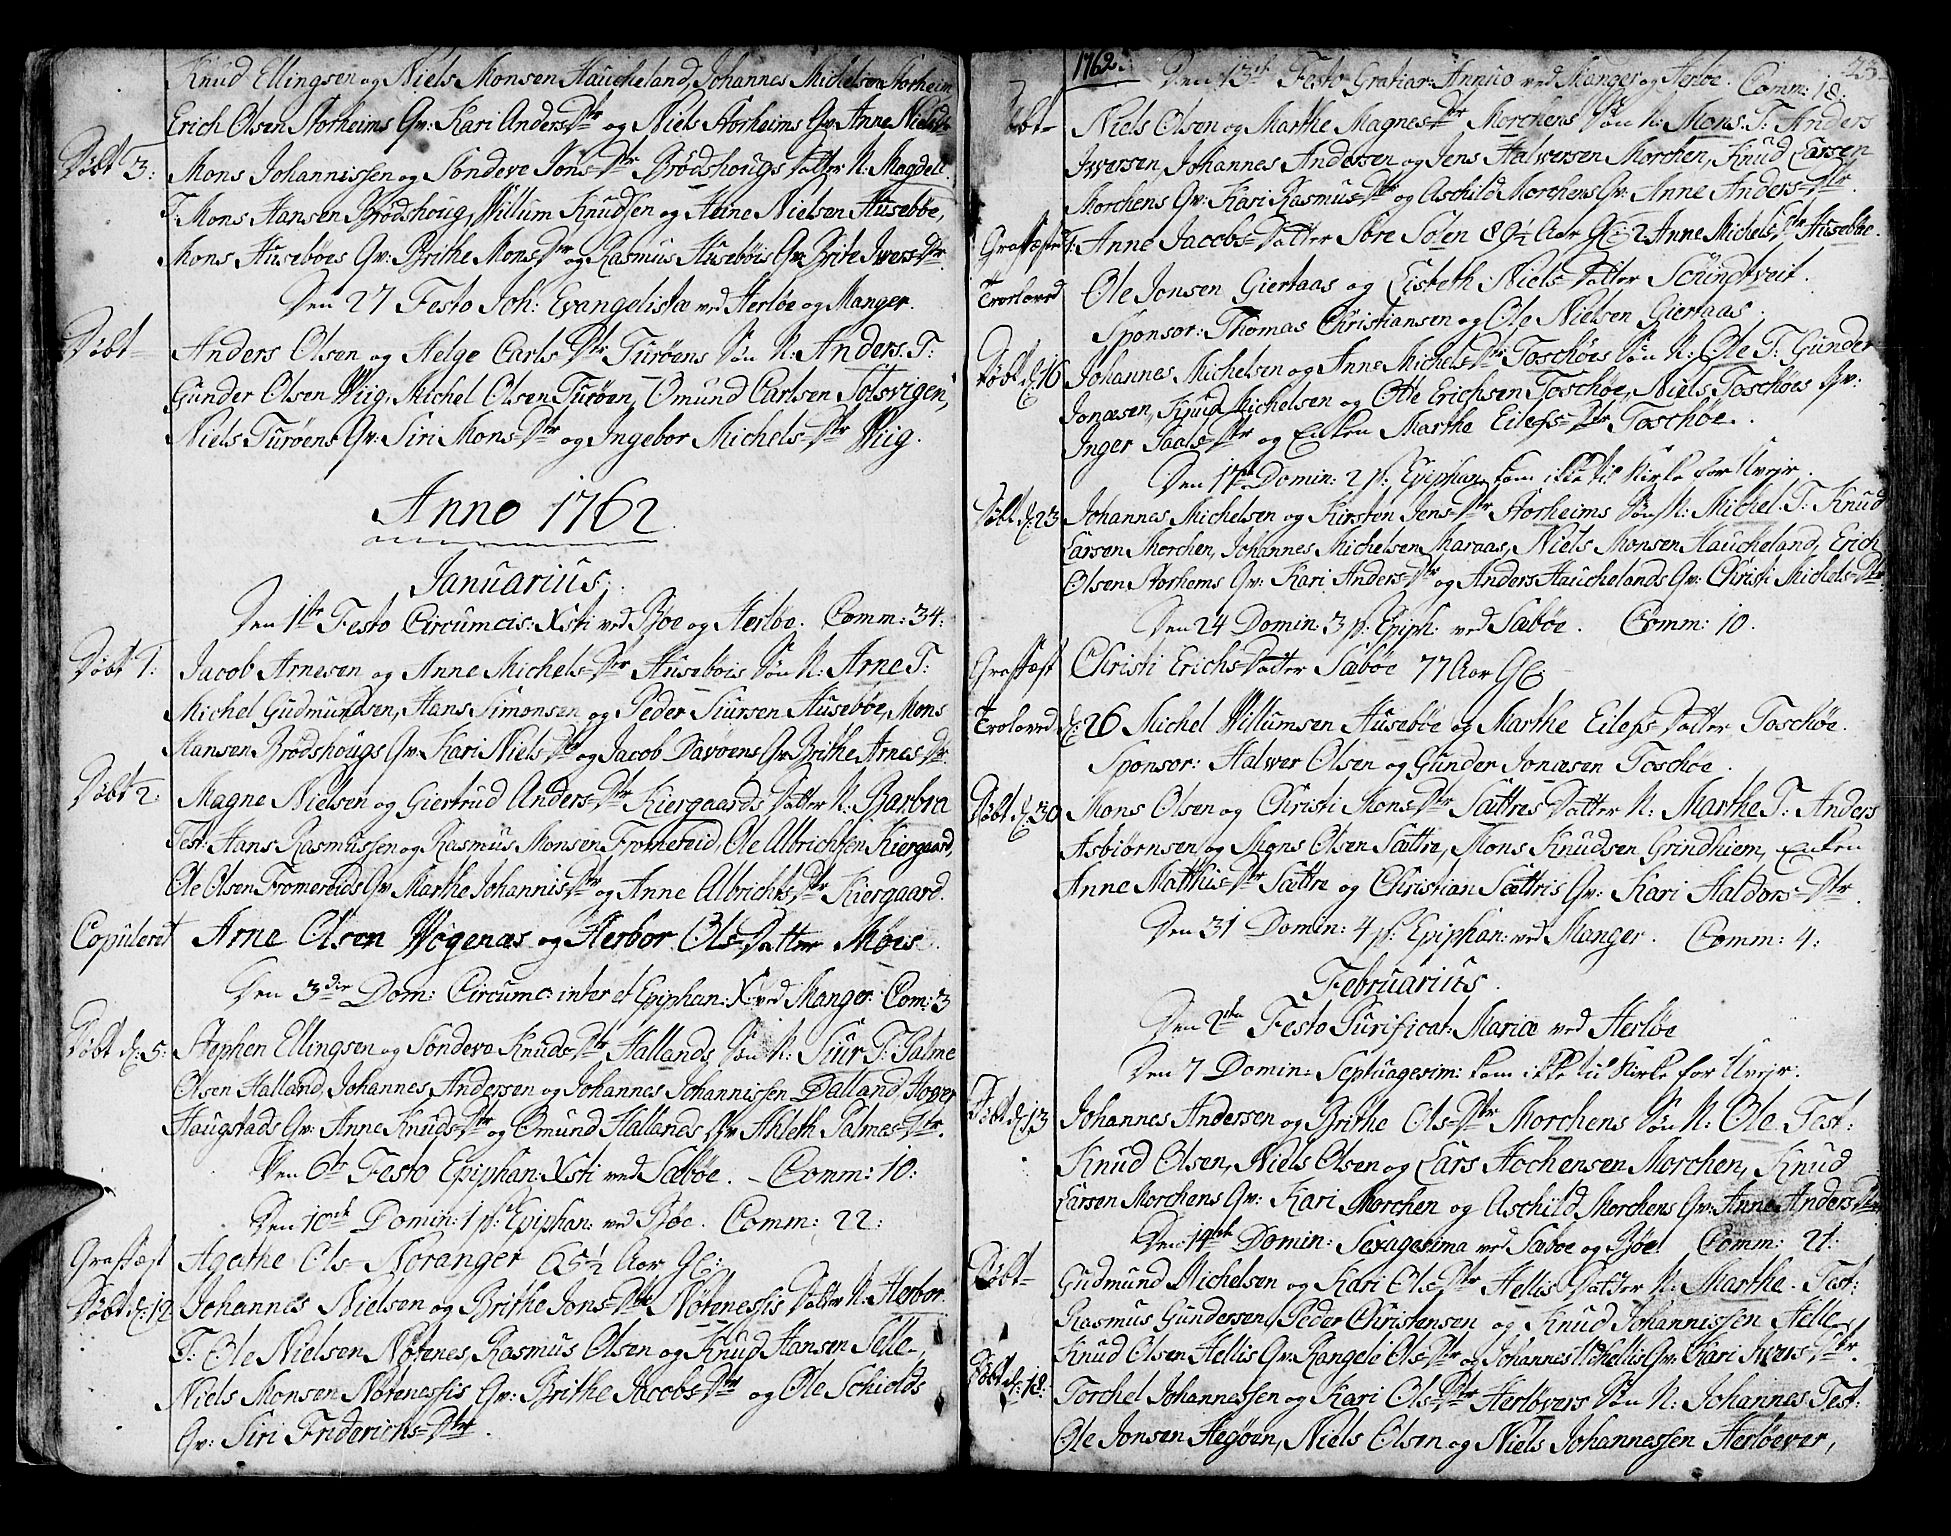 Knud Ellingsen og Niels Monsen Haucheland, Johannes Michelsen Storheim
Erich Olsen Storheims Qv: Kari Anders-Dtr og Niels Storheims Qv: Anne Nielsd:
Døbt 3: Mons Johannissen og Søndeve Jons-Dtr Brødshougs Datter N: Magdele.
T: Mons Hansen Brødshoug, Willum Knudsen og Heine Nielsen Husebøe,
Mons Husebøes Qv: Brithe Mons-Dtr og Rasmus Husebøis Qv: Brite Ivers-Dtr.
Den 27 Festo Joh: Evangelistæ ved Herløe og Manger.
Døbt- Anders Olsen og Helge Carls-Dtr Turøens Søn N: Anders. T:
Gunder Olsen Wiig, Michel Olsen Turøen, Omund Carlsen Tolsvigen,
Niels Turøens Qv: Siri Mons-Dtr og Ingebor Michels-Dtr Wiig.
Anno 1762.
Januarius.
Den 1ste Festo Circumcis: Xsti ved Bøe og Herløe. Comm: 34:
Døbt 1: Jacob Arnesen og Anne Michels-Dtr Husebøis Søn N: Arne T:
Michel Gudmundsen, Hans Simonsen og Peder Siursen Husebøe, Mons
Hansen Brødshougs Qv: Kari Niels-Dtr og Jacob Davøens Qv: Brithe Arnes-Dtr
Døbt 2: Magne Nielsen og Giertrud Anders-Dtr Kiergaards Datter N: Barbra
Test: Hans Rasmussen og Rasmus Monsen Fromereid, Ole Albrichtsen Kiergaard,
Ole Olsen Fromereids Qv: Marthe Johannis-Dtr og Anne Albrichts-Dtr Kiergaard.
Copuleret Arne Olsen Vogenæs og Herbor Ols-Datter Møes.
Den 3die Dom: Circumc: inter et Epiphan: X: ved Manger. Com: 3
Døbt d: 5: Stephen Ellingsen og Sondeva Knuds-Dtr Hallands Søn N: Siur T: Palme
Olsen Halland, Johannes Andersen og Johannes Johannissen Dalland, Haver
Haugstads Qv: Anne Knuds-Dtr og Omund Hallands Qv: Ahleth Palmes-Dtr.
Den 6te Festo Epiphan: Xsti ved Sæbøe. - Comm: 10:
Den 10de Domin: 1 p: Epiphan: ved Bøe. Comm: 22:
Graffæst Agathe Ols- Noranger 65½ Aar Gl:
Døbt d: 12 Johannes Nielsen og Brithe Jons-Dtr Nøtenessis Datter N: Herbor.
T: Ole Nielsen Nøtenes, Rasmus Olsen og Knud Hansen Selle,
Niels Monsen Nøtenessis Qv: Brithe Jacobs-Dtr og Ole Schiolds
Qv: Siri Friderichs-Dtr.
1762. Den 13de Festo Gratiar: Annuo ved Manger og Herløe. Comm: 18: 23
Døbt- Niels Olsen og Marthe Magnes-Dtr Morchens Søn N: Mons. T: Anders
Iversen, Johannes Andersen og Jens Halversen Morchen, Knud Larsen
Morchens Qv: Kari Rasmus-Dtr og Aschild Morchens Qv: Anne Anders-Dtr.
Graffæstet: Anne Jacobs-Datter Søre 89½ Aar Gl: 2 Anne Michels-Dtr Husebøe.
Troloved Ole Jonsen Giertaas og Lisbeth Niels-Datter Soundtveit.
Sponsor: Thomas Christiansen og Ole Nielsen Giertaas.
Døbt d: 16 Johannes Michelsen og Anne Michels-Dtr Toschøes Søn N: Ole T: Gunder
Jonæsen, Knud Michelsen og Otte Erichsen Toschøe, Niels Toschøes Qv:
Inger Paals-Dtr og Enken Marthe Eilefs-Dtr Toschøe.
Den 17de Domin: 2 p: Epiphan: kom ikke til Kirke for Uvejr.
Døbt d: 23 Johannes Michelsen og Kirsten Jens-Dtr Storheims Søn N: Michel. T: Knud
Larsen Morchen, Johannes Michelsen Maraas, Niels Monsen Haucheland, Erich
Olsen Storhems Qv: Kari Anders-Dtr og Anders Hauchelands Qv: Christi Michels-Dtr
Den 24 Domin: 3 p: Epiph: ved Sæbøe. Comm: 10.
Graffæst Christi Erichs-Datter Sæbøe 77 Aar Gl:
Troloved d: 26 Michel Willumsen Husebøe og Marthe Eilefs-Datter Toschøe.
Sponsor: Halver Olsen og Gunder Jonæsen Toschøe.
Døbt d: 30 Mons Olsen og Christi Mons-Dtr Sættres Datter N: Marthe T: Anders
Asbiørnsen og Mons Olsen Sættre, Mons Knudsen Grindhiem, Enken
Anne Matthis-Dtr Sættre og Christian Sættris Qv: Kari Haldors-Dtr.
Den 31 Domin: 4 p: Epiphan: ved Manger. Comm: 4:
Februarius.
Den 2den Festo Purificat: Mariæ ved Herløe
Den 7 Domin: Septuagesim: kom ikke til Kirke for Uvejr.
Døbt d: 13 Johannes Andersen og Brithe Ols-Dtr Morchens Søn N: Ole. Test:
Knud Olsen, Niels Olsen og Lars Hochensen Morchen, Knud
Larsen Morchens Qv: Kari Morchen og Aschild Morchens Qv: Anne Anders-Dtr
Den 14de Domin: Sexagesima ved Sæbøe og Bøe. Comm: 21:
Døbt- Gudmund Michelsen og Kari Ols-Dtr Hellis Datter N: Marthe. Test:
Rasmus Gundersen, Peder Christensen og Knud Johannissen Helle,
Knud Olsen Hellis Qv: Rangele Ols-Dtr og Johannes Hellis Qv: Kari Ivers-Dtr.
Døbt d: 18: Torchel Johannessen og Kari Ols-Dtr Herløvers Søn N: Johannes Test:
Ole Jonsen Hegøen, Niels Olsen og Niels Johannessen Herløever,